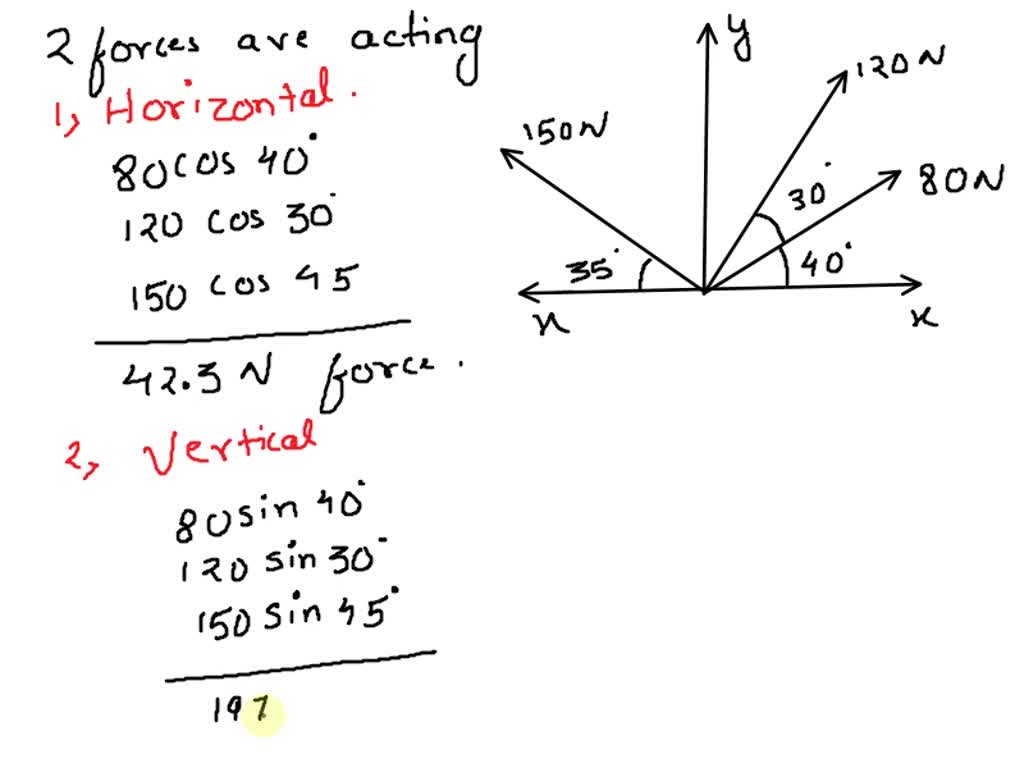 2 forces are acting
1, Horizontal.
80 cos 40°
120 cos 30°
150 cos 45
42.3 N force.
2, Vertical
80 sin 40°
120 sin 30°
150 sin 45°
197
y
120N
150N
80N
30°
35°
40°
x
x